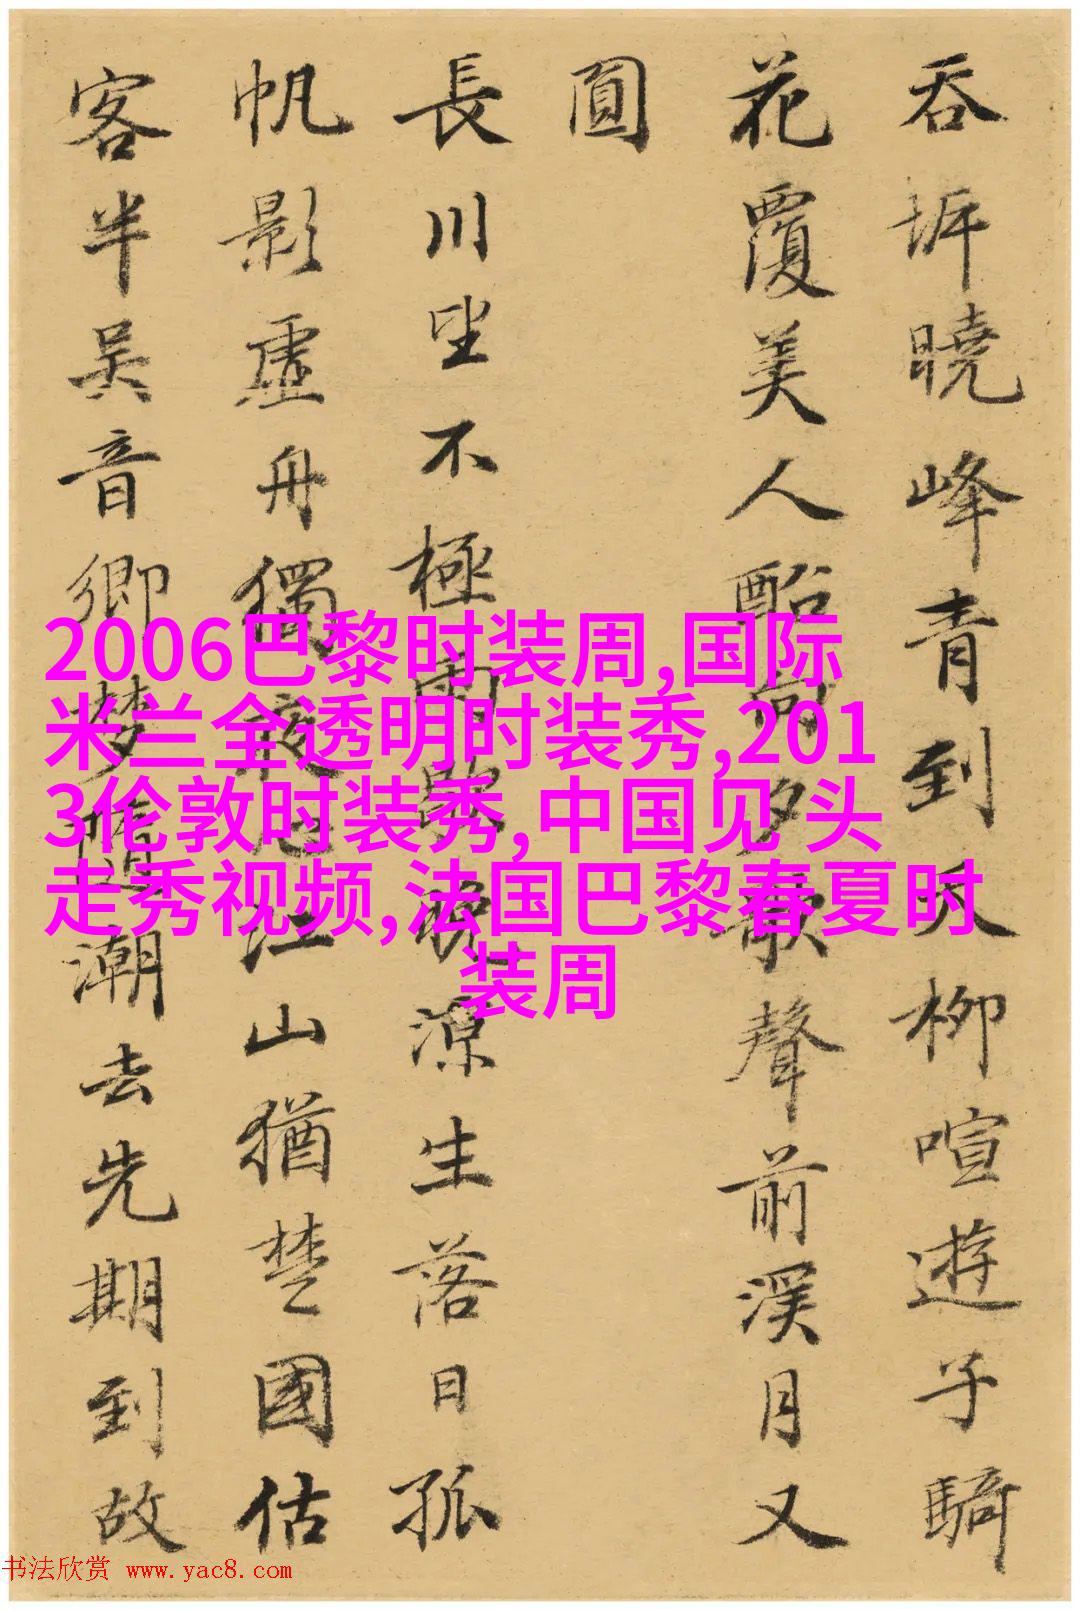 吞坼曉峰青到天柳喧遊子騎
花覆美人夕歌聲前溪月又
圓
長川坐不極雨歇源生落日孤
帆影虛舟獨夜心江山猶楚國估
客半吳音鄉夢隨潮去先期到故
2006巴黎时装周,国际
米兰全透明时装秀,201
3伦敦时装秀,中国见 头
走秀视频,法国巴黎春夏时
装周
书法欣赏 www.yac8.com